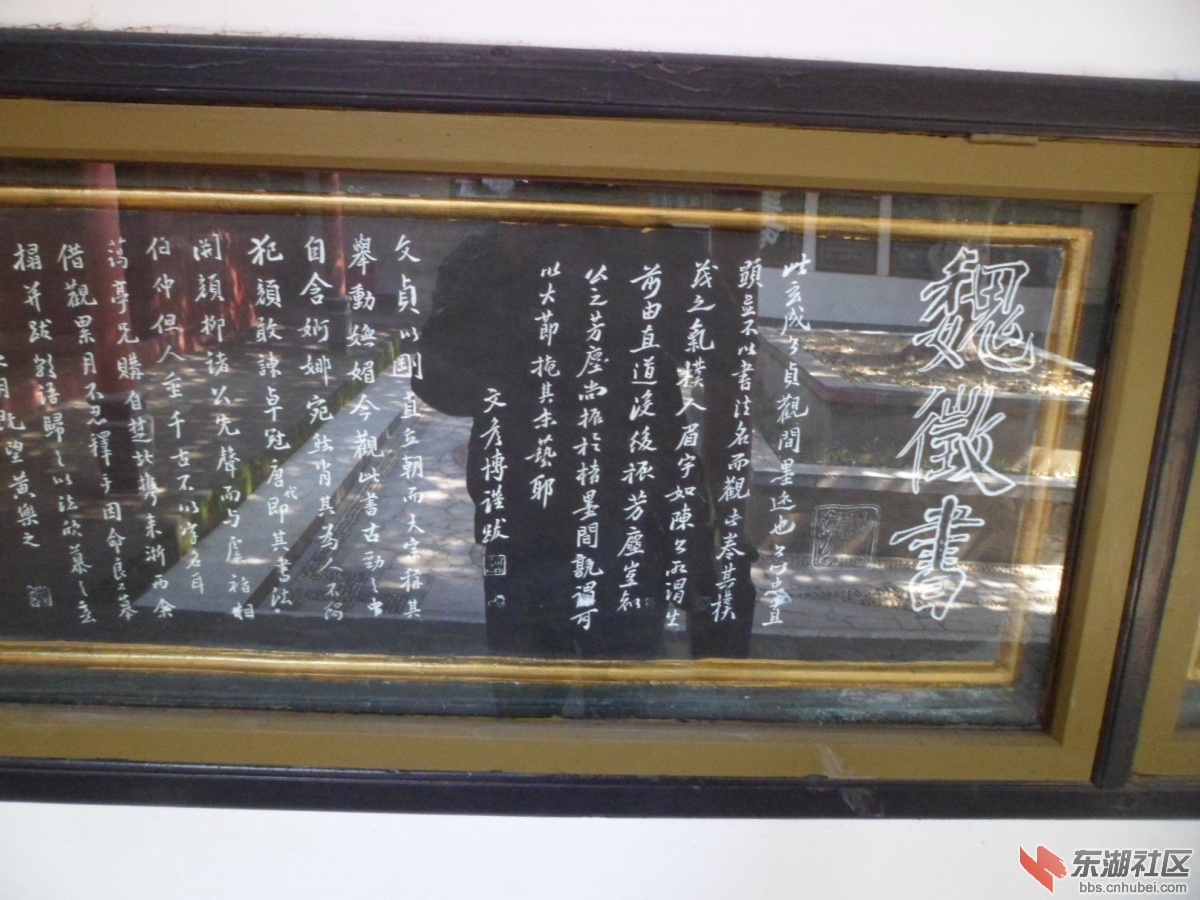 魏徵書
此玄成公貞觀間墨迹也公以忠直
頭並不以書法名而觀此卷其樸
茂之氣撲人眉宇如陳公所謂生
前由直道沒後振芳塵豈知
公之芳塵尚振於楮墨間孰謂可
以大節掩其末藝耶
文彥博謹跋
文貞以剛直立朝而太宗稱其
舉動嫵媚今觀此書古勁之中
自含婀娜宛然肖其為人不獨
犯顏敢諫卓冠唐代即其書法
開顏柳諸公先聲而与虞褚相
伯仲但人垂千古不以字名耳
亭兄購自楚北携来浙西余
借觀累月不忍釋手因命良工摹
搨并跋數語歸之以法欣慕之意
月既望黃樂之
东湖社区
bbs.cnhubei.com